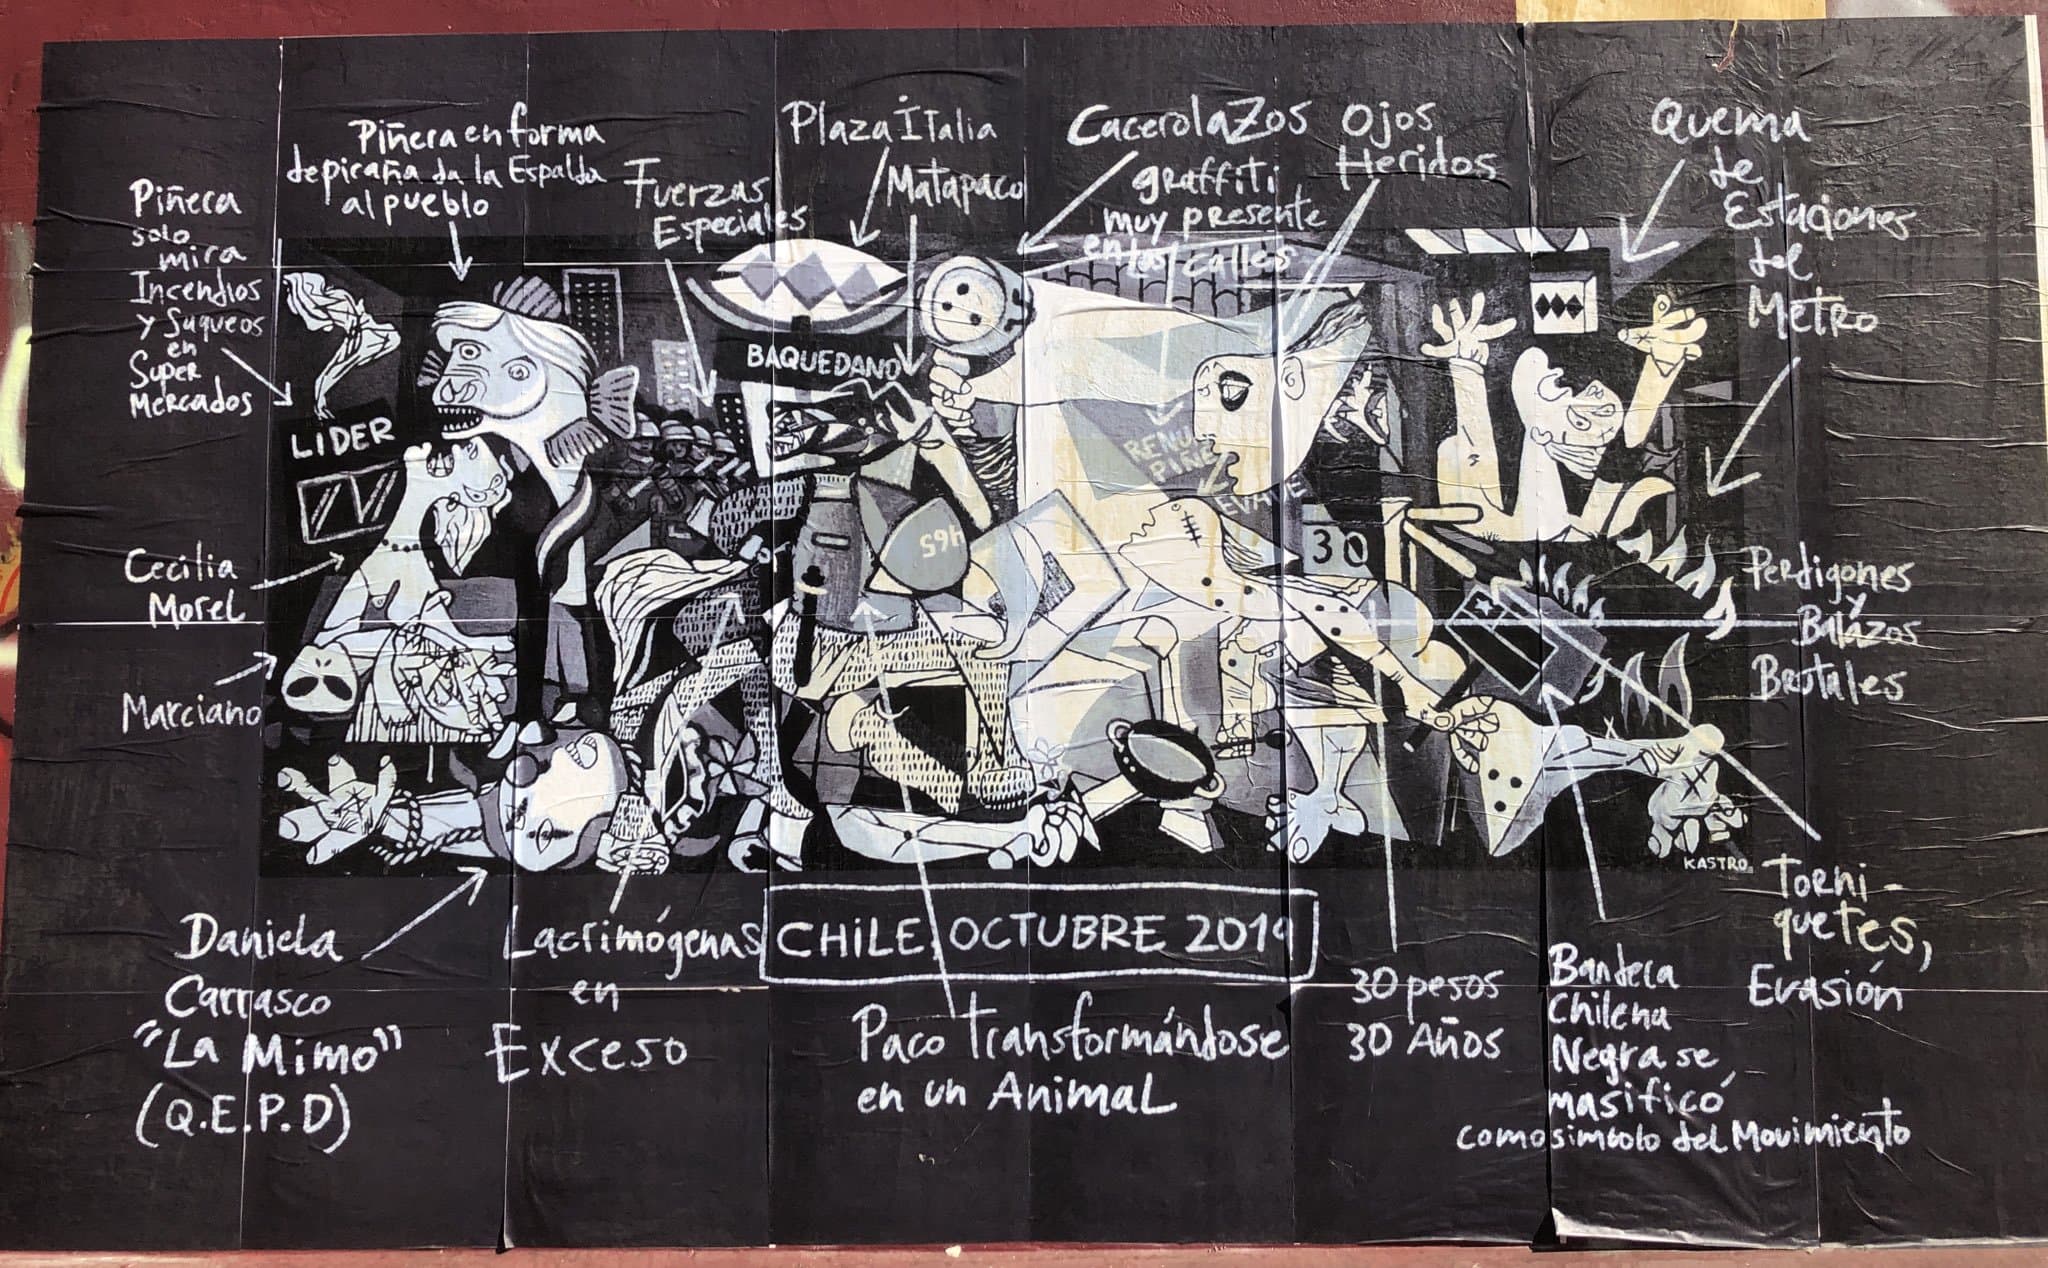 Piñera
solo
mira
Incendios
y Saqueos
en
Super
Mercados
Piñera en forma
de piraña da la Espalda
al pueblo
Fuerzas
Especiales
Plaza Italia
Matapaco
Cacerolazos
graffiti
muy presente
en las calles
Ojos
Heridos
Quema
de
Estaciones
del
Metro
LIDER
TV
BAQUEDANO
465
RENU
PIÑE
EVADE
30
Cecilia
Morel
Marciano
Perdigones
y
Balazos
Brutales
KASTRO.
Daniela
Carrasco
"La Mimo"
(Q.E.P.D)
Lacrimógenas
en
Exceso
CHILE, OCTUBRE 2019
Paco Transformándose
en un Animal
30 pesos
30 Años
Bandera
Chilena
Negra se
masificó
como simbolo del Movimiento
Torni-
quetes,
Evasión